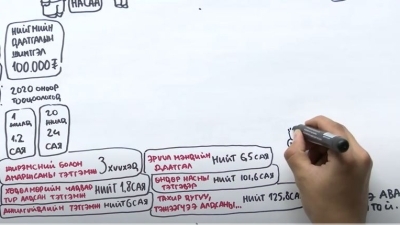 НАСАН
НИЙГМИЙН
ДААТГАЛЫН
ШИМТГЭЛ
100.000₮
2020 ОНООР
ТООЦООЛОХОД
1
ЖИЛД
1.2
САЯ
20
ЖИЛД
24
САЯ
ЖИРЭМСНИЙ БОЛОН
АМАРЖСАНЫ ТЭТГЭМЖ
3 ХҮҮХЭД
ХӨДӨЛМӨРИЙН ЧАДВАР
ТҮР АЛДСАН ТЭТГЭМЖ
НИЙТ 1.8 САЯ
АЖИЛГҮЙДЛИЙН ТЭТГЭМЖ НИЙТ 6 САЯ
ЭРҮҮЛ МЭНДИЙН
ДААТГАЛ
НИЙТ 6,5 САЯ
ӨНДӨР НАСНЫ
ТЭТГЭВЭР
НИЙТ 101,6 САЯ
ТАХИР ДУТУУ,
ТЭЖЭЭГЧЭЭ АЛДСАНЫ...
НИЙТ 125,8 САЯ
АВА